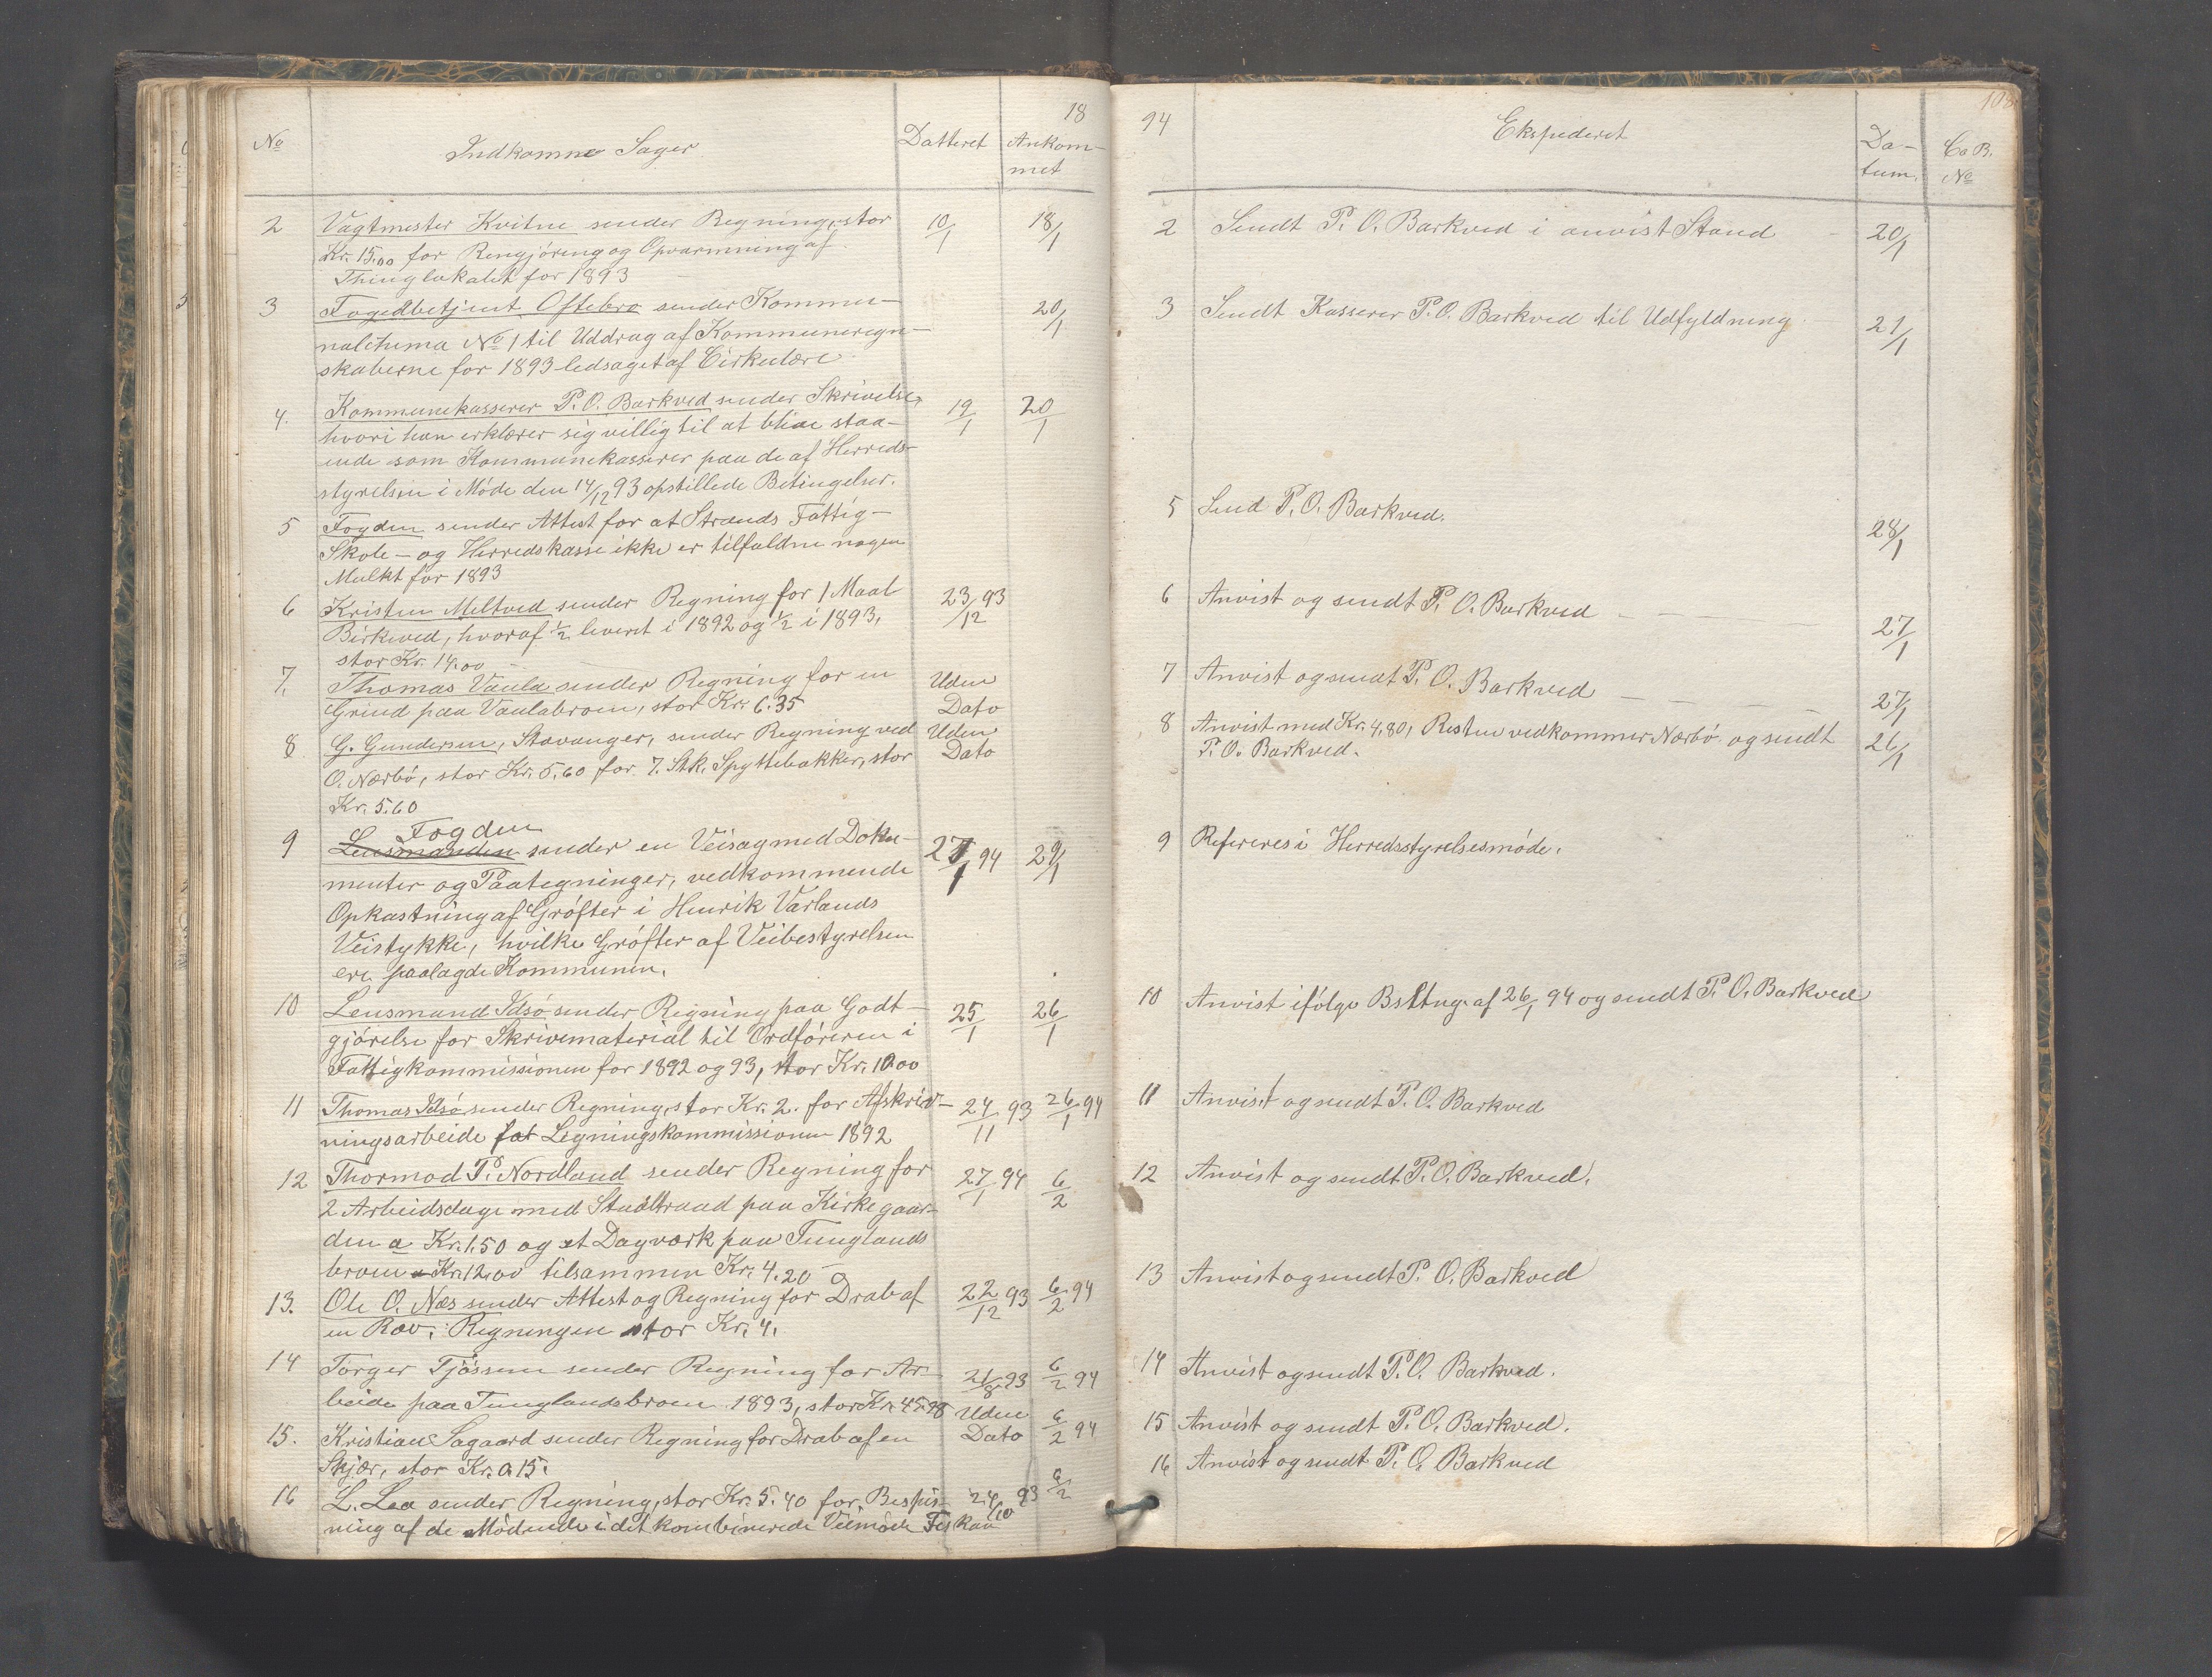 18
No Indkomne Sager Datteret Ankom-
met
2 Vagtmester Kvitne sender Regning, stor 10/1 18/1
Kr. 15,00 for Rengjøring og Opvarmning af
Thinglokalet for 1893
3 Fogedbetjent Oftebro sender Kommu- 20/1
nalchema No 1 til Uddrag af Kommuneregn-
skaberne for 1893 ledsaget af Cirkulære
4. Kommunekasserer P. O. Barkved sender Skrivelse, 19/1 20/1
hvori han erklærer sig villig til at blive staa-
ende som Kommunekasserer paa de af Herreds-
styrelsen i Møde den 14/12 93 opstillede Betingelser.
5 Fogden sender Attest for at Strands Fattig-
Skole- og Herredskasse ikke er tilfaldne nogen
Mulkt for 1893
6 Kristen Meltved sender Regning for 1 Maal 23/12 93
Birkeved, hvoraf 1/2 leveret i 1892 og 1/2 i 1893,
stor Kr. 14.00
7. Thomas Vaula sender Regning for en Uden
Grind paa Vaulabroen, stor Kr. 6.35 Dato
8 G. Gundersen, Stavanger, sender Regning ved Uden
O. Nærbø, stor Kr. 5,60 for 7. Stk. Spyttebakker, stor Dato
Kr. 5.60
Fogden
9 Lensmanden sender en Veisag med Doku- 27/1 94 29/1
menter og Paategninger, vedkommende
Opkastning af Grøfter i Henrik Varlands
Veistykke, hvilke Grøfter af Veibestyrelsen
ere paalagde Kommunen.
10 Lensmand Idsø sender Regning paa Godt- 25/1 26/1
gjørelse for Skrivematerial til Ordføreren i
Fattigkommissionen for 1892 og 93, stor Kr. 10.00
11 Thomas Idsø sender Regning, stor Kr. 2. for Afskriv- 24/11 93 26/1 94
ningsarbeide for Ligningskommissionen 1892
12 Thormod P. Nordland sender Regning for 27/1 94 6/2
2 Arbeidsdage med Staaltraad paa Kirkegaar-
den a Kr. 1.50 og et Dagværk paa Tunglands
broen a Kr. 12.00 tilsammen Kr. 4.20
13. Ole O. Næs sender Attest og Regning for Drab af 22/12 93 6/2 94
en Ræv. Regningen stor Kr. 4.
14 Torger Tjøssem sender Regning for Ar- 21/8 93 6/2 94
beide paa Tunglandsbroen 1893, stor Kr.
15. Kristian Sagaard sender Regning for Drab af en Uden Dato 6/2 94
Skjær, stor Kr. 0.15.
16 L. Lea sender Regning, stor Kr. 5.40 for Bespis- 24/10 93 6/2
ning af de Mødende i det kombinerede Veimøde Fiskaa
94 Ekspederet Da-
tum. Co B.
No
108
2 Sendt P. O. Barkved i anvist Stand 20/1
3 Sendt Kasserer P. O. Barkved til Udfyldning 21/1
5 Send P. O. Barkved. 28/1
6 Anvist og sendt P. O. Barkved 27/1
7 Anvist og sendt P. O. Barkved 27/1
8 Anvist med Kr. 4,80, Resten vedkommer Nærbø og sendt 26/1
P. O. Barkved.
9 Refereres i Herredsstyrelsesmøde.
10 Anvist ifølge Bsltng. af 26/1 94 og sendt P. O. Barkved
11 Anvist og sendt P. O. Barkved
12 Anvist og sendt P. O. Barkved.
13 Anvist og sendt P. O. Barkved
14 Anvist og sendt P. O. Barkved.
15 Anvist og sendt P. O. Barkved.
16 Anvist og sendt P. O. Barkved